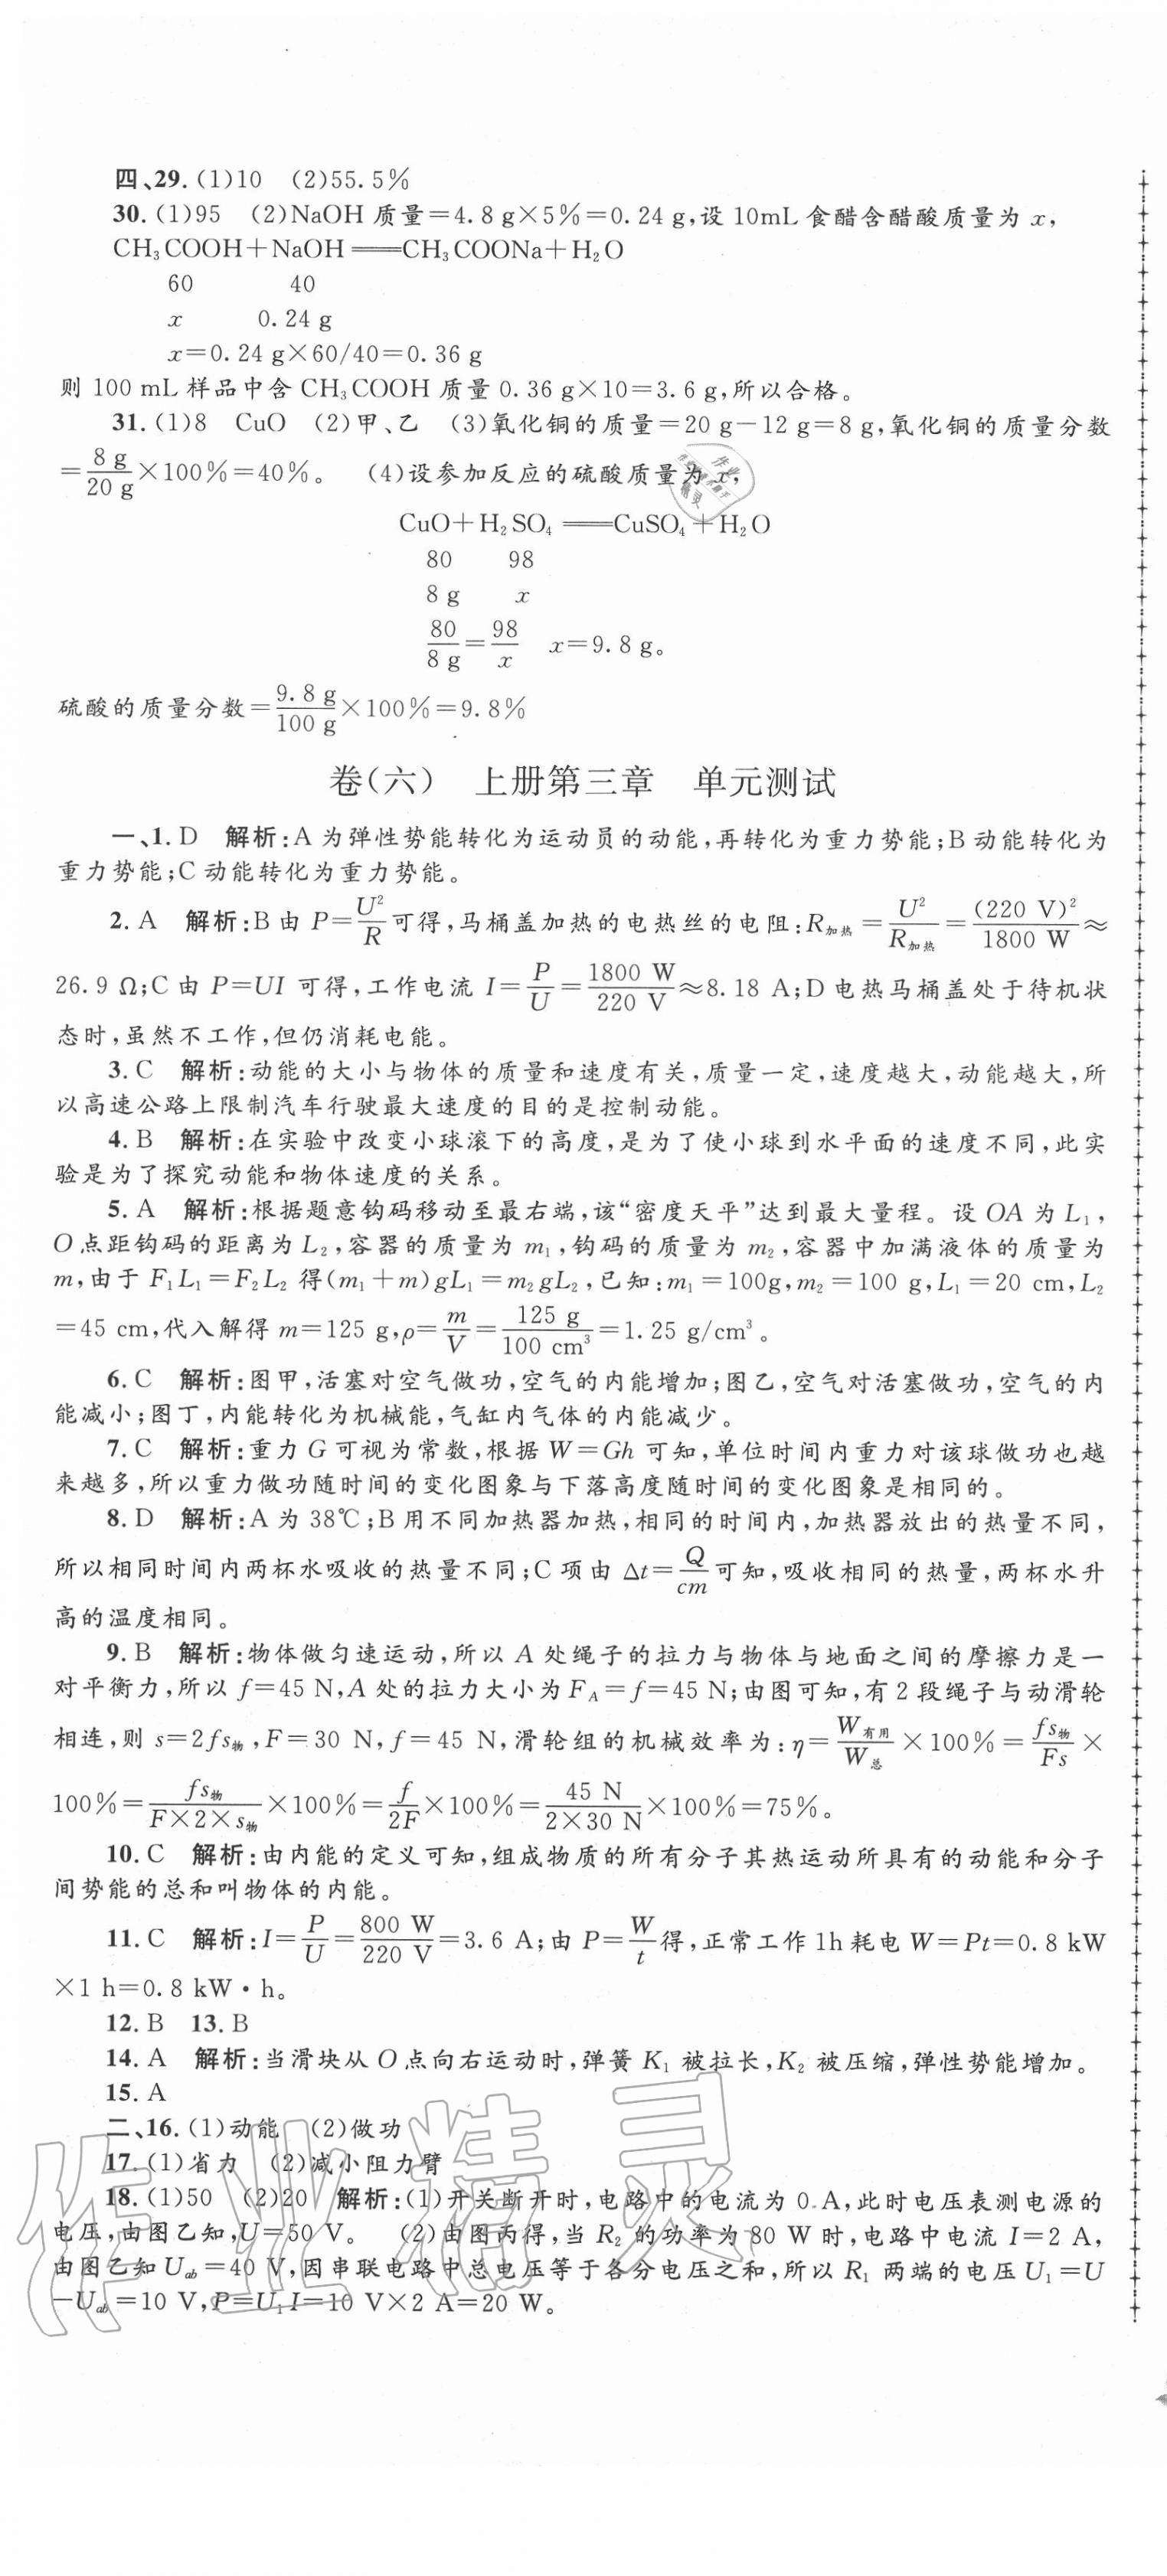 四、29.(1)10 (2)55.5%
30.(1)95 (2)NaOH 质量=4.8 g×5%=0.24 g,设 10mL 食醋含醋酸质量为 x,
CH₃COOH+NaOH══CH₃COONa+H₂O
60 40
x 0.24 g
x=0.24 g×60/40=0.36 g
则 100 mL 样品中含 CH₃COOH 质量 0.36 g×10=3.6 g,所以合格。
31.(1)8 CuO (2)甲、乙 (3)氧化铜的质量=20 g-12 g=8 g,氧化铜的质量分数
=8 g/20 g×100%=40%。 (4)设参加反应的硫酸质量为 x,
CuO+H₂SO₄══CuSO₄+H₂O
80 98
8 g x
80/8 g=98/x x=9.8 g。
硫酸的质量分数=9.8 g/100 g×100%=9.8%
卷(六) 上册第三章 单元测试
一、1. D 解析:A 为弹性势能转化为运动员的动能,再转化为重力势能;B 动能转化为
重力势能;C 动能转化为重力势能。
2. A 解析:B 由 P=U²/R可得,马桶盖加热的电热丝的电阻:R加热=U²/R加热=(220 V)²/1800 W≈
26.9 Ω;C 由 P=UI 可得,工作电流 I=P/U=1800 W/220 V≈8.18 A;D 电热马桶盖处于待机状
态时,虽然不工作,但仍消耗电能。
3. C 解析:动能的大小与物体的质量和速度有关,质量一定,速度越大,动能越大,所
以高速公路上限制汽车行驶最大速度的目的是控制动能。
4. B 解析:在实验中改变小球滚下的高度,是为了使小球到水平面的速度不同,此实
验是为了探究动能和物体速度的关系。
5. A 解析:根据题意钩码移动至最右端,该“密度天平”达到最大量程。设 OA 为 L₁,
O 点距钩码的距离为 L₂,容器的质量为 m₁,钩码的质量为 m₂,容器中加满液体的质量为
m,由于 F₁L₁=F₂L₂ 得(m₁+m)gL₁=m₂gL₂,已知:m₁=100g,m₂=100 g,L₁=20 cm,L₂
=45 cm,代入解得 m=125 g,ρ=m/V=125 g/100 cm³=1.25 g/cm³。
6. C 解析:图甲,活塞对空气做功,空气的内能增加;图乙,空气对活塞做功,空气的内
能减小;图丁,内能转化为机械能,气缸内气体的内能减少。
7. C 解析:重力 G 可视为常数,根据 W=Gh 可知,单位时间内重力对该球做功也越
来越多,所以重力做功随时间的变化图象与下落高度随时间的变化图象是相同的。
8. D 解析:A 为 38℃;B 用不同加热器加热,相同的时间内,加热器放出的热量不同,
所以相同时间内两杯水吸收的热量不同;C 项由 Δt=Q/cm可知,吸收相同的热量,两杯水升
高的温度相同。
9. B 解析:物体做匀速运动,所以 A 处绳子的拉力与物体与地面之间的摩擦力是一
对平衡力,所以 f=45 N,A 处的拉力大小为 F_A=f=45 N;由图可知,有 2 段绳子与动滑轮
相连,则 s=2fs物,F=30 N,f=45 N,滑轮组的机械效率为:η=W有用/W总×100%=fs物/Fs×
100%=fs物/F×2×s物×100%=f/2F×100%=45 N/2×30 N×100%=75%。
10. C 解析:由内能的定义可知,组成物质的所有分子其热运动所具有的动能和分子
间势能的总和叫物体的内能。
11. C 解析:I=P/U=800 W/220 V=3.6 A;由 P=W/t得,正常工作 1h 耗电 W=Pt=0.8 kW
×1 h=0.8 kW·h。
12. B 13. B
14. A 解析:当滑块从 O 点向右运动时,弹簧 K₁ 被拉长,K₂ 被压缩,弹性势能增加。
15. A
二、16.(1)动能 (2)做功
17.(1)省力 (2)减小阻力臂
18.(1)50 (2)20 解析:(1)开关断开时,电路中的电流为 0 A,此时电压表测电源的
电压,由图乙知,U=50 V。 (2)由图丙得,当 R₂ 的功率为 80 W 时,电路中电流 I=2 A,
由图乙知 U_ab=40 V,因串联电路中总电压等于各分电压之和,所以 R₁ 两端的电压 U₁=U
-U_ab=10 V,P=U₁I=10 V×2 A=20 W。
作业精灵